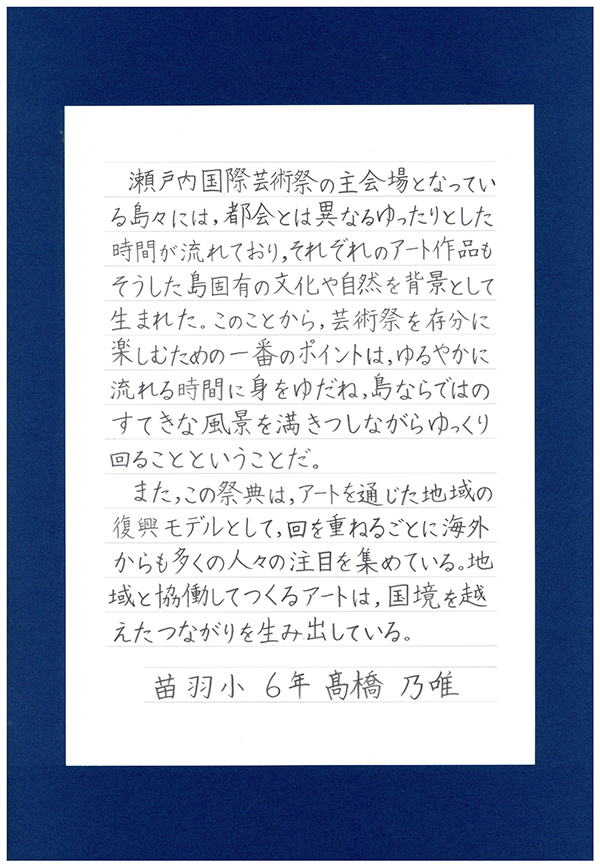 瀬戸内国際芸術祭の主会場となってい
る島々には，都会とは異なるゆったりとした
時間が流れており，それぞれのアート作品も
そうした島固有の文化や自然を背景として
生まれた。このことから，芸術祭を存分に
楽しむための一番のポイントは，ゆるやかに
流れる時間に身をゆだね，島ならではの
すてきな風景を満きつしながらゆっくり
回ることということだ。
また，この祭典は，アートを通じた地域の
復興モデルとして，回を重ねるごとに海外
からも多くの人々の注目を集めている。地
域と協働してつくるアートは，国境を越
えたつながりを生み出している。
苗羽小 6年 髙橋 乃唯